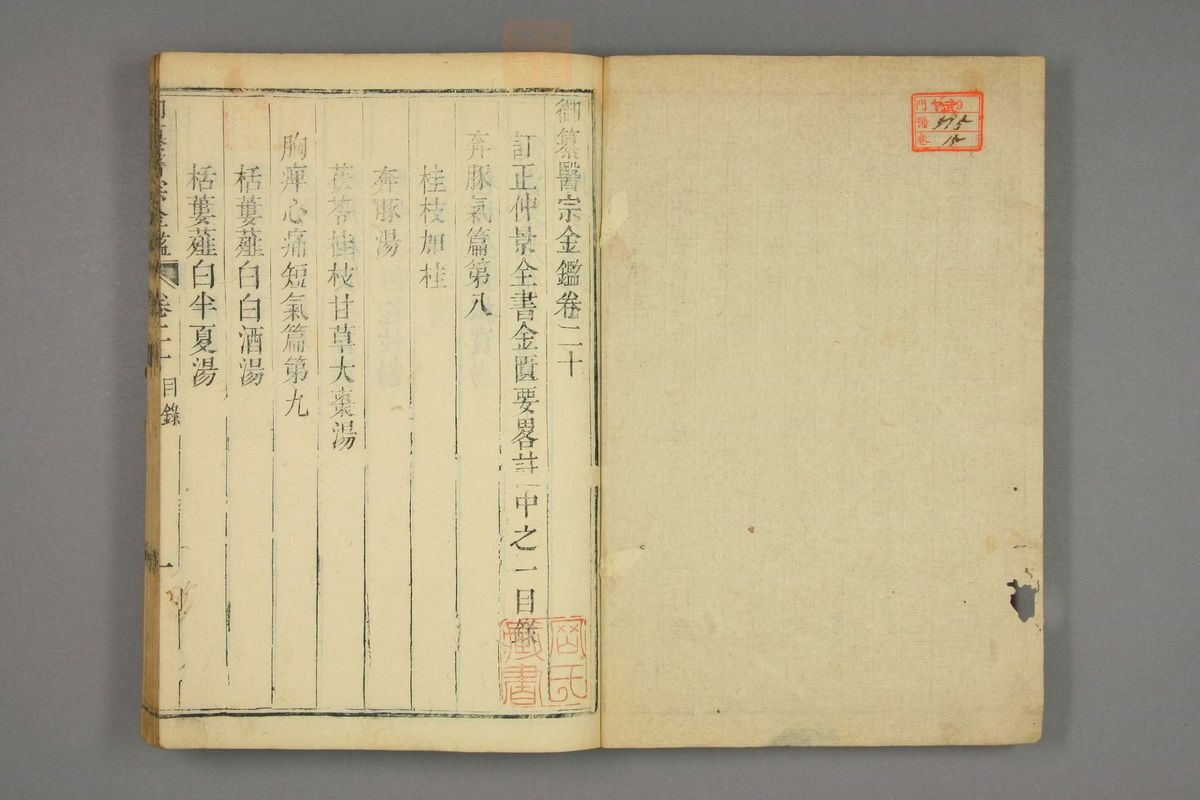 御纂醫宗金鑑卷二十
訂正仲景全書金匱要畧註中之一目錄
奔豚氣篇第八
桂枝加桂
奔豚湯
茯苓桂枝甘草大棗湯
胸痺心痛短氣篇第九
栝蔞薤白白酒湯
栝蔞薤白半夏湯
御纂醫宗金鑑 卷二十 目錄 一
藏書
門
號 375
卷